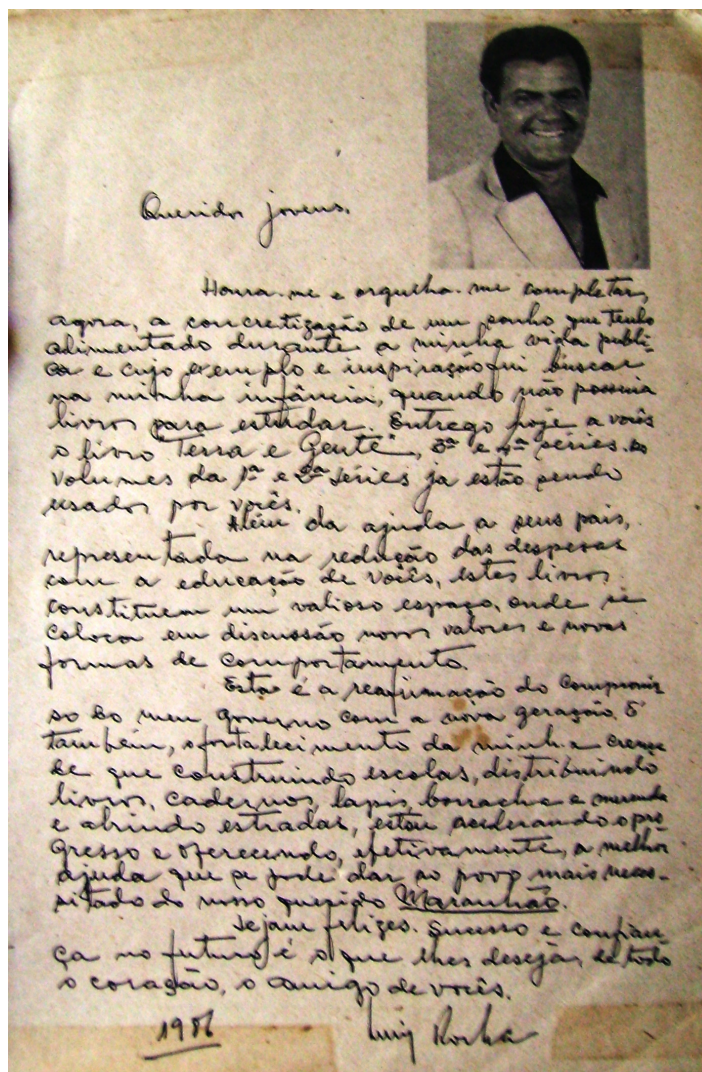 Queridos jovens.
Honra-me e orgulha-me completar,
agora, a concretização de um sonho que tenho
alimentado durante a minha vida públi-
ca e cujo exemplo e inspiração fui buscar
na minha infância, quando não possuia
livros para estudar. Entrego hoje a vocês
o livro "Terra e Gente", 3ª e 4ª séries. Os
volumes da 1ª e 2ª séries ja estão sendo
usados por vocês.
Além da ajuda a seus pais,
representada na redução das despesas
com a educação de vocês, estes livros
constituem um valioso espaço, onde se
coloca em discussão novos valores e novas
formas de comportamento.
Esta é a reafirmação do compromis
so do meu governo com a nova geração. É
também, o fortalecimento da minha crença
de que construindo escolas, distribuindo
livros, cadernos, lapis, borracha e merenda
e abrindo estradas, estou acelerando o pro
gresso e oferecendo, efetivamente, a melhor
ajuda que se pode dar ao povo mais neces-
sitado do nosso querido Maranhão.
Sejam felizes. Sucesso e confian-
ça no futuro é o que lhes deseja, de todo
o coração, o amigo de vocês.
1986 Luiz Rocha